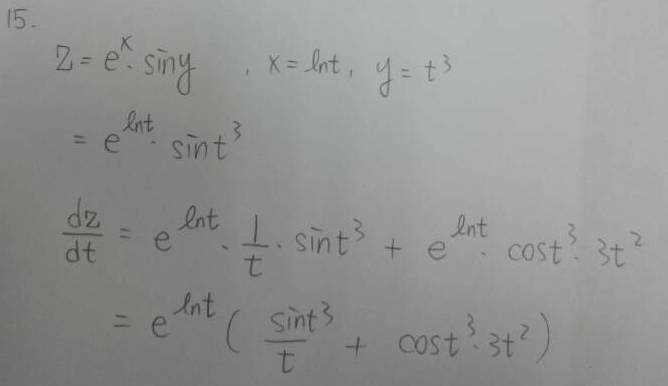 15.
z = e^x · sin y , x = ln t , y = t^3
= e^{ln t} · sin t^3
dz/dt = e^{ln t} · 1/t · sin t^3 + e^{ln t} · cos t^3 · 3t^2
= e^{ln t} ( sin t^3 / t + cos t^3 · 3t^2 )